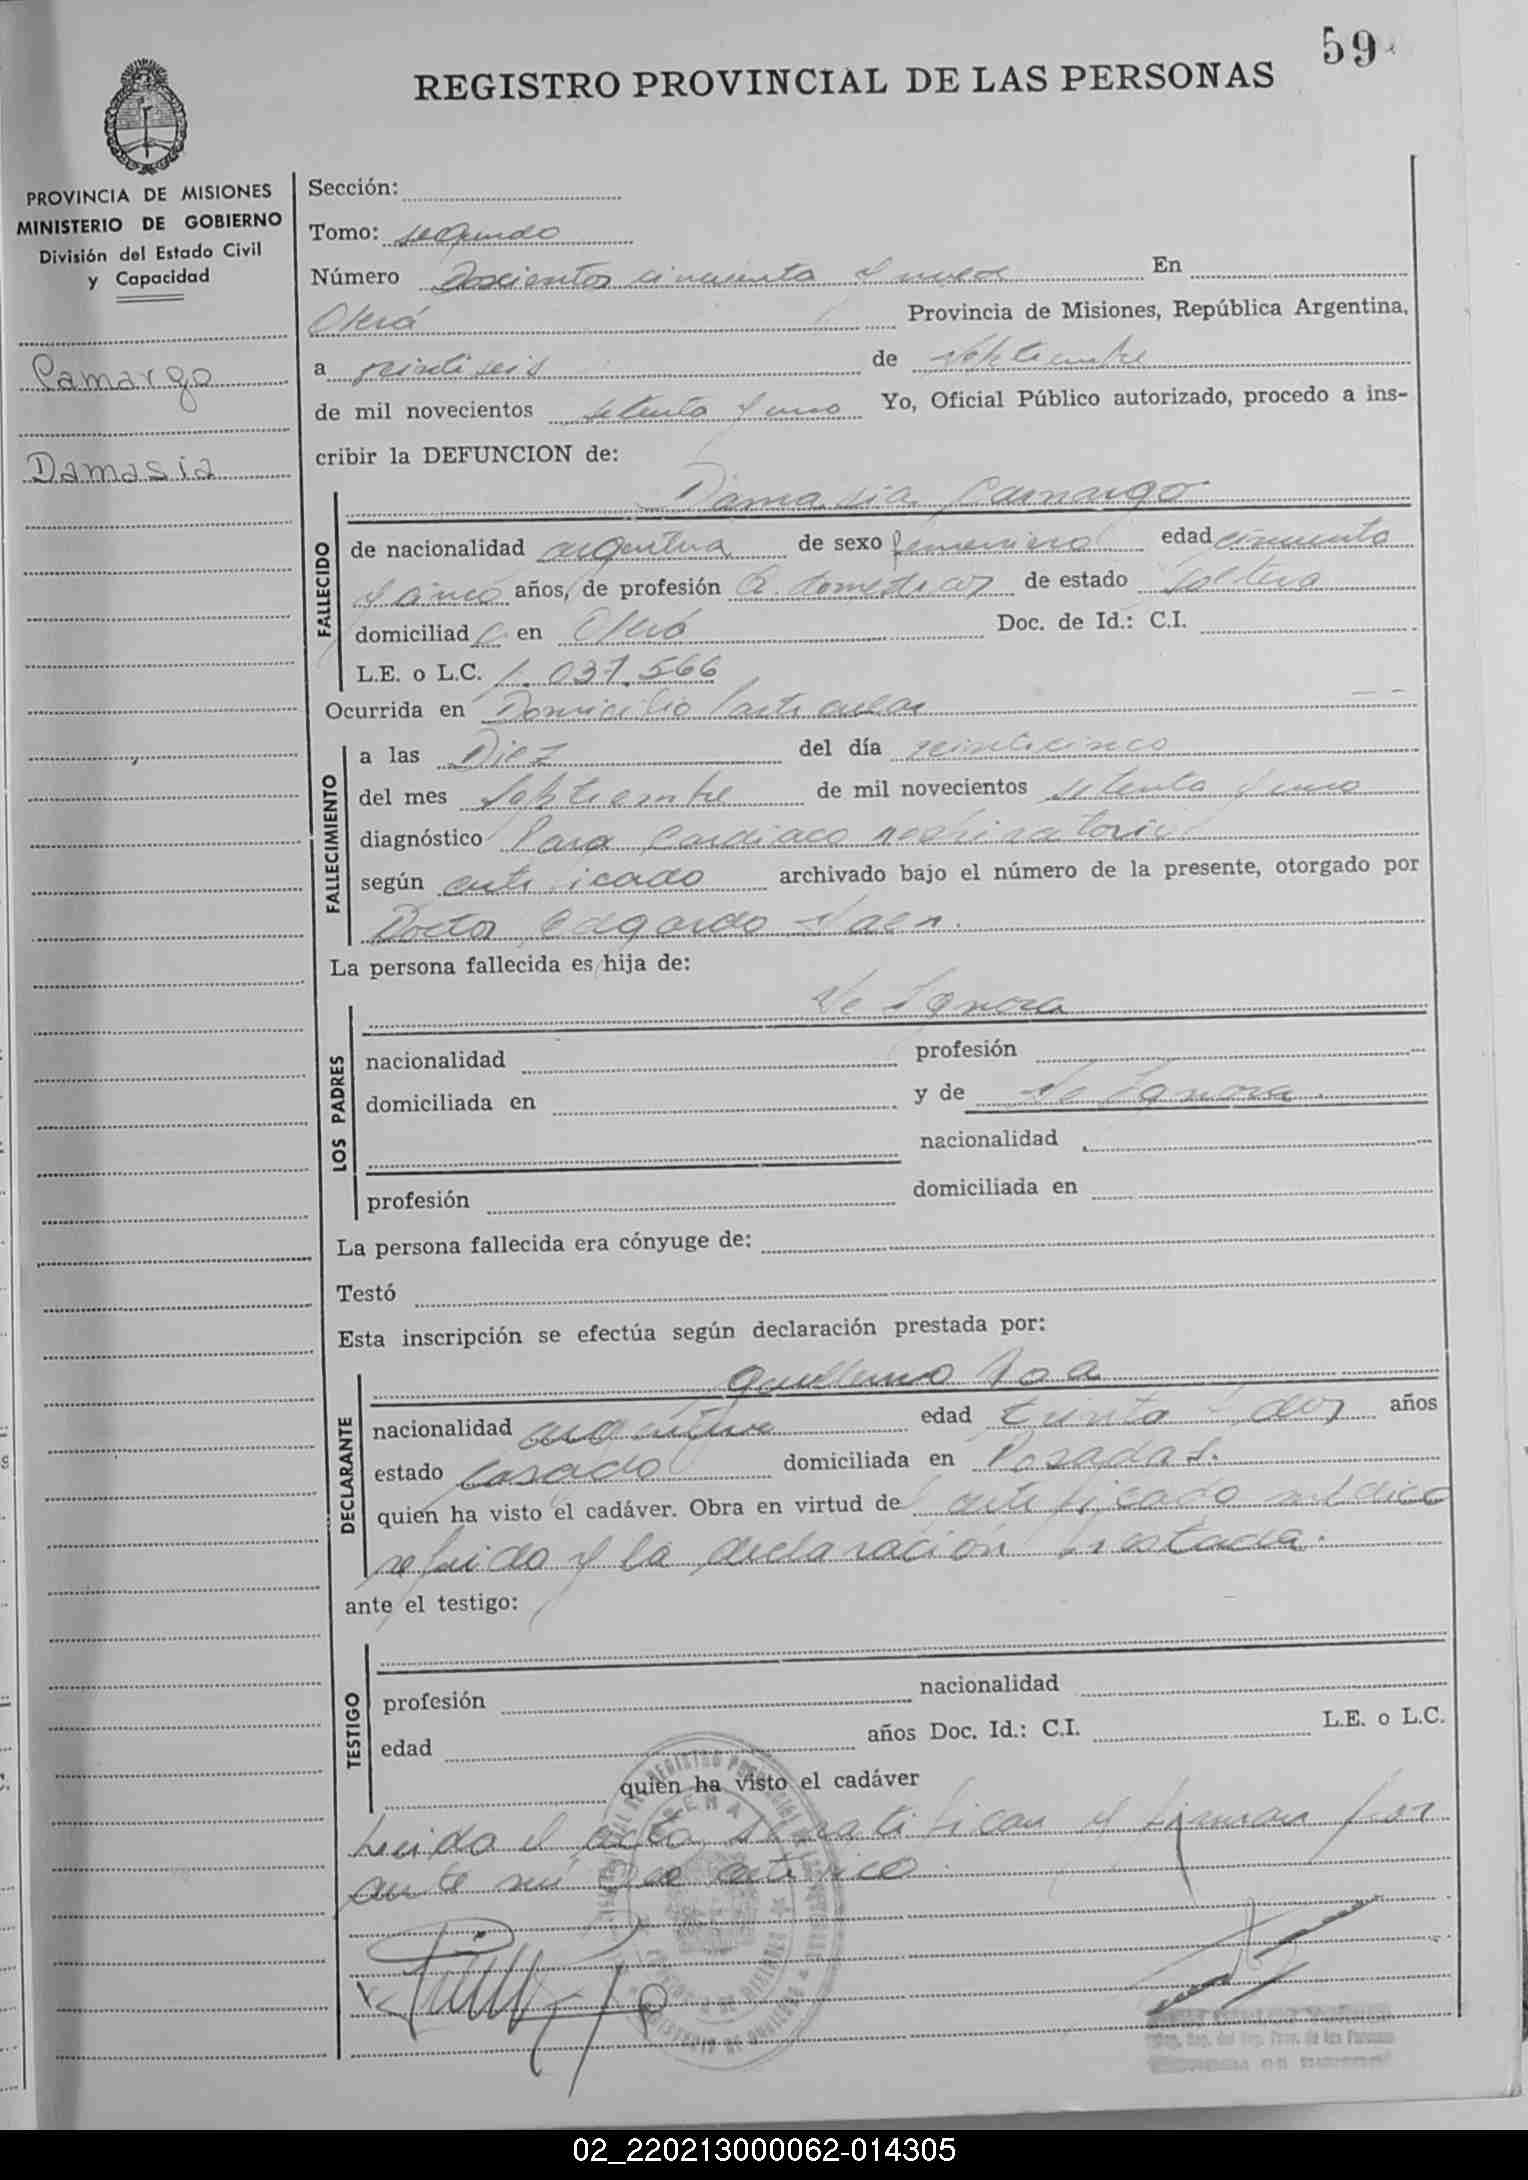 59
REGISTRO PROVINCIAL DE LAS PERSONAS
PROVINCIA DE MISIONES
MINISTERIO DE GOBIERNO
División del Estado Civil
y Capacidad
Camargo
Damasia
Sección:
Tomo: segundo
Número Doscientos cincuenta y nueve En
Oberá Provincia de Misiones, República Argentina,
a veintiseis de septiembre
de mil novecientos setenta y uno Yo, Oficial Público autorizado, procedo a ins-
cribir la DEFUNCION de:
Damasia Camargo
FALLECIDO
de nacionalidad argentina de sexo femenino edad cincuenta
y cinco años, de profesión Q. domesticos de estado soltera
domiciliad a en Oberá Doc. de Id.: C.I.
L.E. o L.C. 1.037.566
Ocurrida en Domicilio Particular
FALLECIMIENTO
a las Diez del día veinticinco
del mes septiembre de mil novecientos setenta y uno
diagnóstico Paro Cardiaco respiratorio
según certificado archivado bajo el número de la presente, otorgado por
Doctor Edgardo
La persona fallecida es hija de:
Se Ignora
LOS PADRES
nacionalidad profesión
domiciliada en y de Se Ignora.
nacionalidad
profesión domiciliada en
La persona fallecida era cónyuge de:
Testó
Esta inscripción se efectúa según declaración prestada por:
Guillermo
DECLARANTE
nacionalidad argentino edad treinta y dos años
estado casado domiciliada en Posadas.
quien ha visto el cadáver. Obra en virtud de certificado médico
referido y la declaración prestada.
ante el testigo:
TESTIGO
profesión nacionalidad
edad años Doc. Id.: C.I. L.E. o L.C.
quien ha visto el cadáver
Leido el acta, se ratifican y firman por
ante mi que certifico
02_220213000062-014305